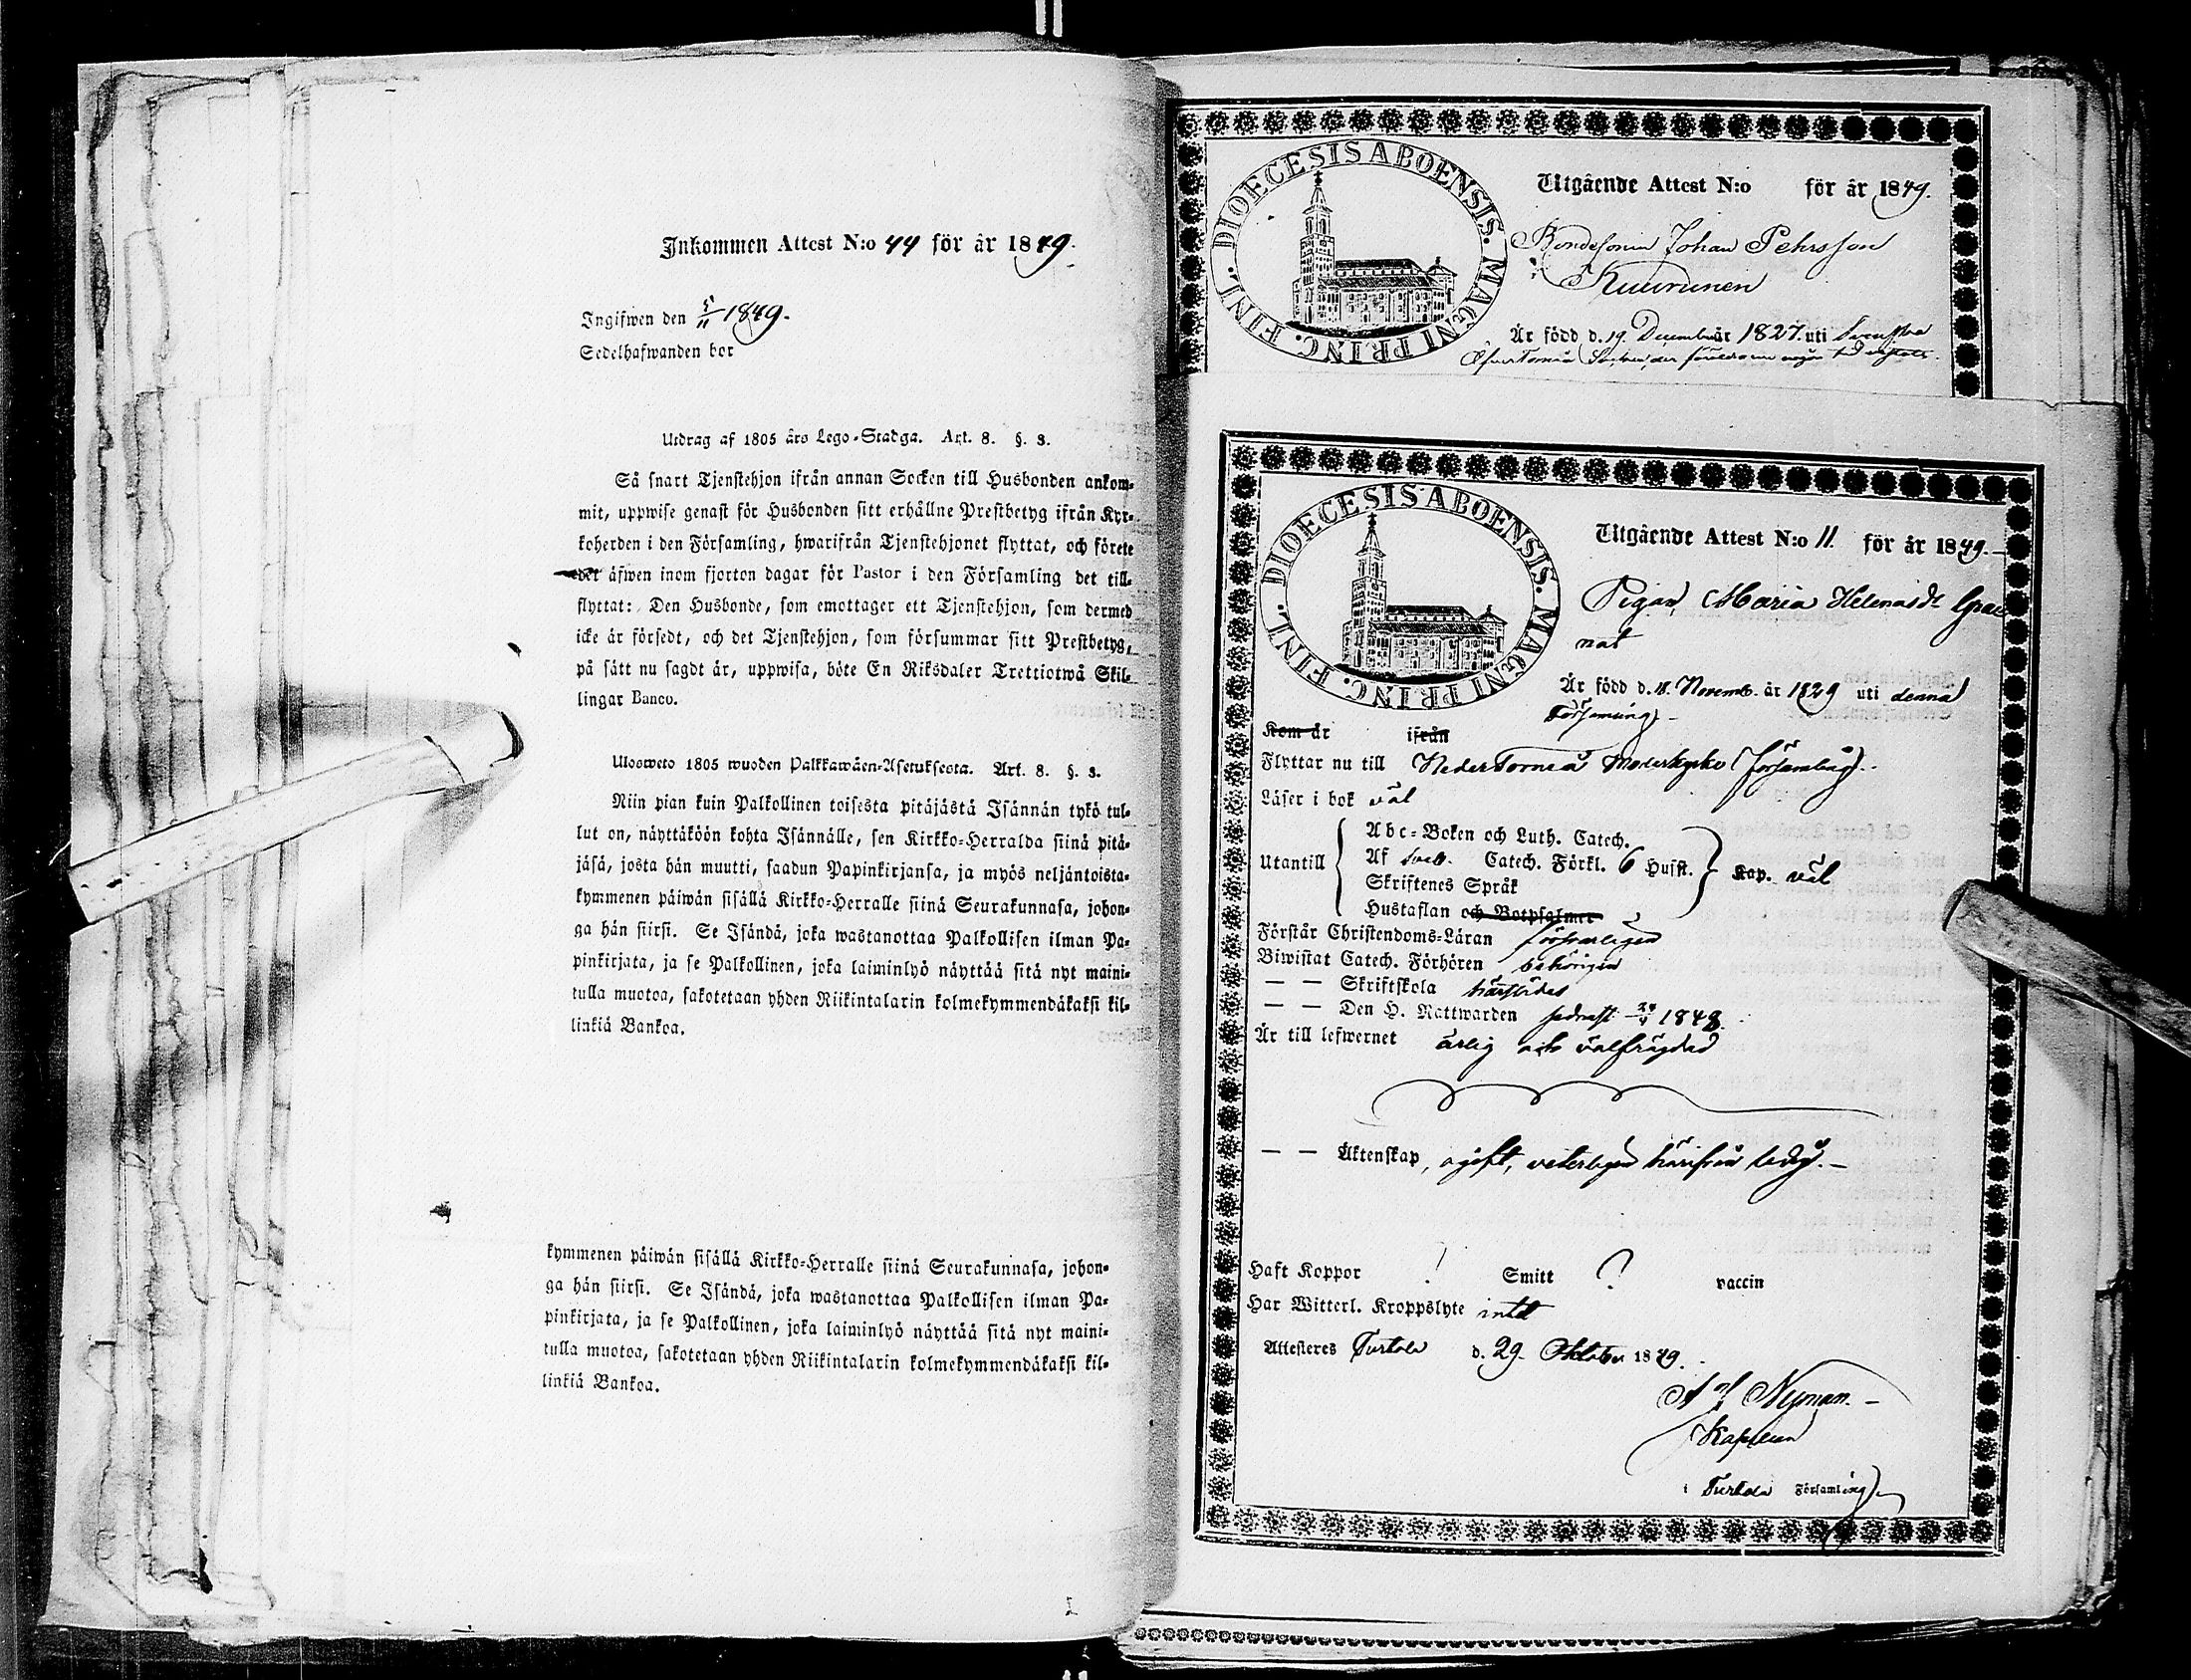 Inkommen Attest N:o 44 för år 1849.
Ingifwen den 5/11 1849.
Sedelhafwanden bor
Utdrag af 1805 års Lego-Stadga. Art. 8. §. 3.
Så snart Tjenstehjon ifrån annan Socken till Husbonden ankom-
mit, uppwise genast för Husbonden sitt erhållne Prestbetyg ifrån Kyr-
koherden i den Församling, hwarifrån Tjenstehjonet flyttat, och förete
det äfwen inom fjorton dagar för Pastor i den Församling det till-
flyttat: Den Husbonde, som emottager ett Tjenstehjon, som dermed
icke är försedt, och det Tjenstehjon, som försummar sitt Prestbetyg,
på sätt nu sagdt är, uppwisa, böte En Riksdaler Trettiotwå Skil-
lingar Banco.
Ulosweto 1805 wuoden Palkkawäen-Asetuksesta. Art. 8. §. 3.
Niin pian kuin Palkollinen toisesta pitäjästä Isännän tykö tul-
lut on, näyttäköön kohta Isännälle, sen Kirkko-Herralda siinä pitä-
jäsä, josta hän muutti, saadun Papinkirjansa, ja myös neljäntoista-
kymmenen päiwän sisällä Kirkko-Herralle siinä Seurakunnasa, johon-
ga hän siirsi. Se Isändä, joka wastanottaa Palkollisen ilman Pa-
pinkirjata, ja se Palkollinen, joka laiminlyö näyttää sitä nyt maini-
tulla muotoa, sakotetaan yhden Riikintalarin kolmekymmendäkaksi kil-
linkiä Bankoa.
kymmenen päiwän sisällä Kirkko-Herralle siinä Seurakunnasa, johon-
ga hän siirsi. Se Isändä, joka wastanottaa Palkollisen ilman Pa-
pinkirjata, ja se Palkollinen, joka laiminlyö näyttää sitä nyt maini-
tulla muotoa, sakotetaan yhden Riikintalarin kolmekymmendäkaksi kil-
linkiä Bankoa.
DIOECESIS ABOENSIS. MAGNI PRINC. FINL.
Utgående Attest N:o för år 1849.
Bondesonen Johan Pehrsson
Kuurunen
Är född d. 19 December år 1827. uti Svenska
Öfver Torneå Socken, der föräldrarne någon tid
DIOECESIS ABOENSIS. MAGNI PRINC. FINL.
Utgående Attest N:o 11. för år 1849.
Pigan, Maria Helenasdr
Är född d. 18. Novemb. år 1829 uti denna
Församling
Kom år ifrån
Flyttar nu till Neder Torneå Moderkyrko församling.
Läser i bok väl
Utantill
Abc-Boken och Luth. Catech.
Af Sveb. Catech. Förkl. 6 Hufst.
Skriftenes Språk
Hustaflan och Botpsalmer
Kap. väl
Förstår Christendoms-Läran försvarligen
Biwistat Catech. Förhören behörigen
— — Skriftskola härstädes
— — Den H. Nattwarden sednast 1848.
Är till lefwernet ärlig och välfrägdad
— — Äktenskap, ogift, veterligen härifrån ledig.
Haft Koppor ! Smitt ? vaccin
Har Witterl. Kroppslyte intet
Attesteres Turtola d. 29. Oktober 1849.
Nyman.
Kapellan
i Turtola Församling